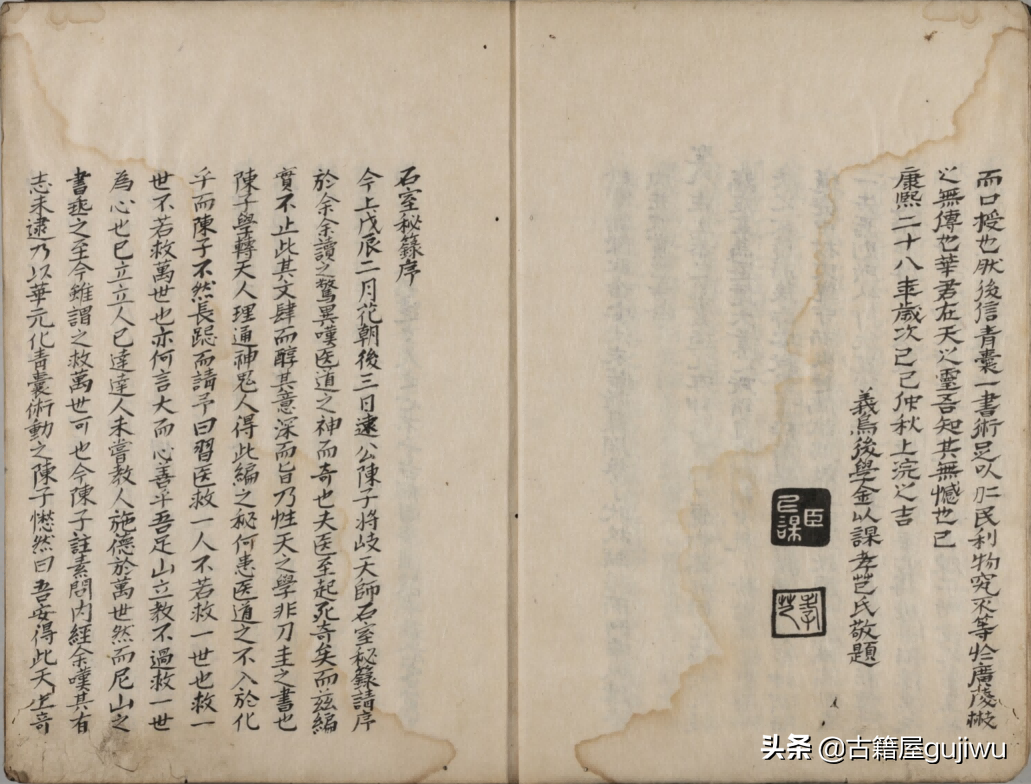 而口授也肰後信青囊一書術足以仁民利物究不等於廣陵散
之無傳也華君在天之靈吾知其無憾也已
康熙二十八年歲次己巳仲秋上浣之吉
義烏後學金以謀孝芑氏敬題
臣以謀
孝芑
石室秘籙序
今上戊辰二月花朝後三日遠公陳子將岐天師石室秘籙請序
於余余讀之驚異嘆医道之神而奇也夫医至起死奇矣而茲編
實不止此其文肆而醇其意深而旨乃性天之學非刀圭之書也
陳子學轉天人理通神鬼人得此編之秘何患医道之不入於化
乎而陳子不然長跽而請予曰習医救一人不若救一世也救一
世不若救萬世也亦何言大而心善乎吾足山立教不過救一世
為心也已立立人已達達人未嘗教人施德於萬世然而尼山之
書垂之至今雖謂之救萬世可也今陳子註素問內經余嘆其有
志未逮乃以華元化青囊術動之陳子憮然曰吾安得此天上奇
头条 @古籍屋gujiwu